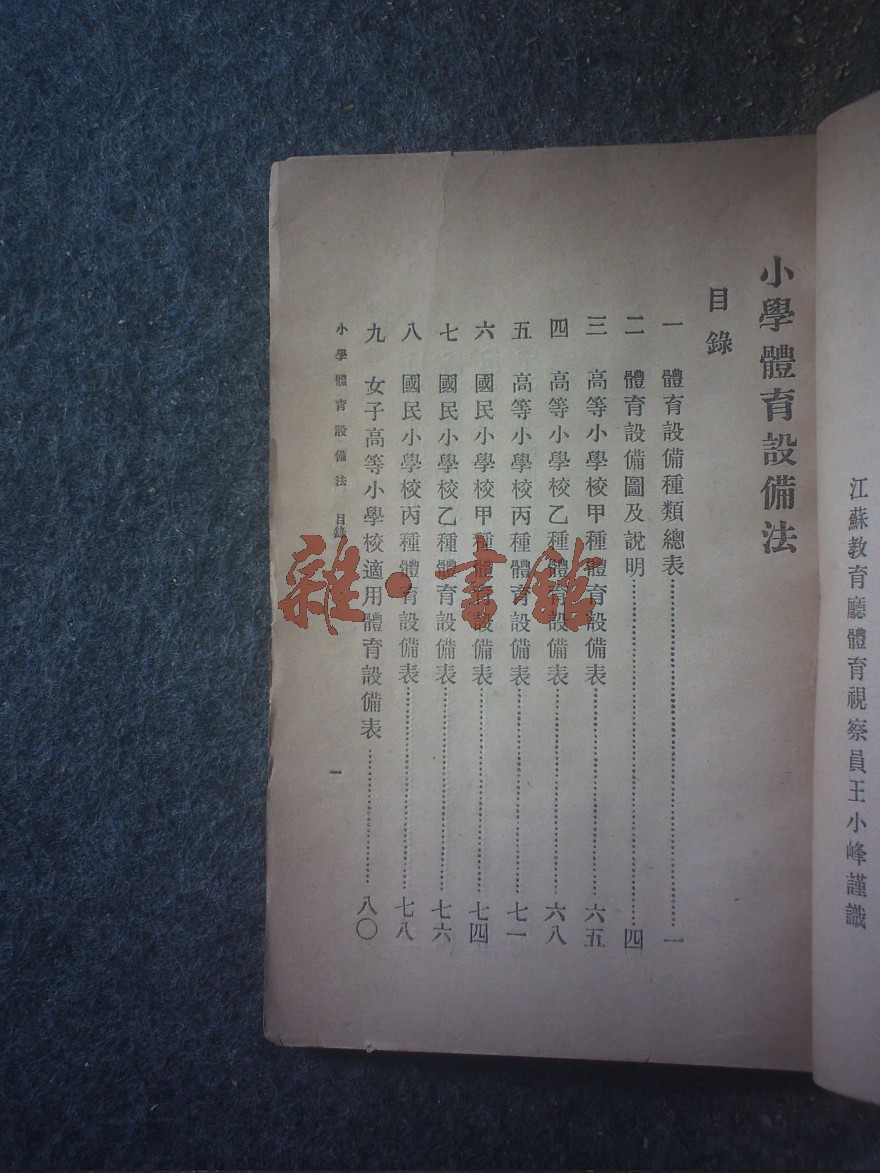 江蘇教育廳體育視察員王小峰謹識
小學體育設備法
目錄
一 體育設備種類總表……一
二 體育設備圖及說明……四
三 高等小學校甲種體育設備表……六五
四 高等小學校乙種體育設備表……六八
五 高等小學校丙種體育設備表……七一
六 國民小學校甲種體育設備表……七四
七 國民小學校乙種體育設備表……七六
八 國民小學校丙種體育設備表……七八
九 女子高等小學校適用體育設備表……八〇
小學體育設備法 目錄 一
雜·書館